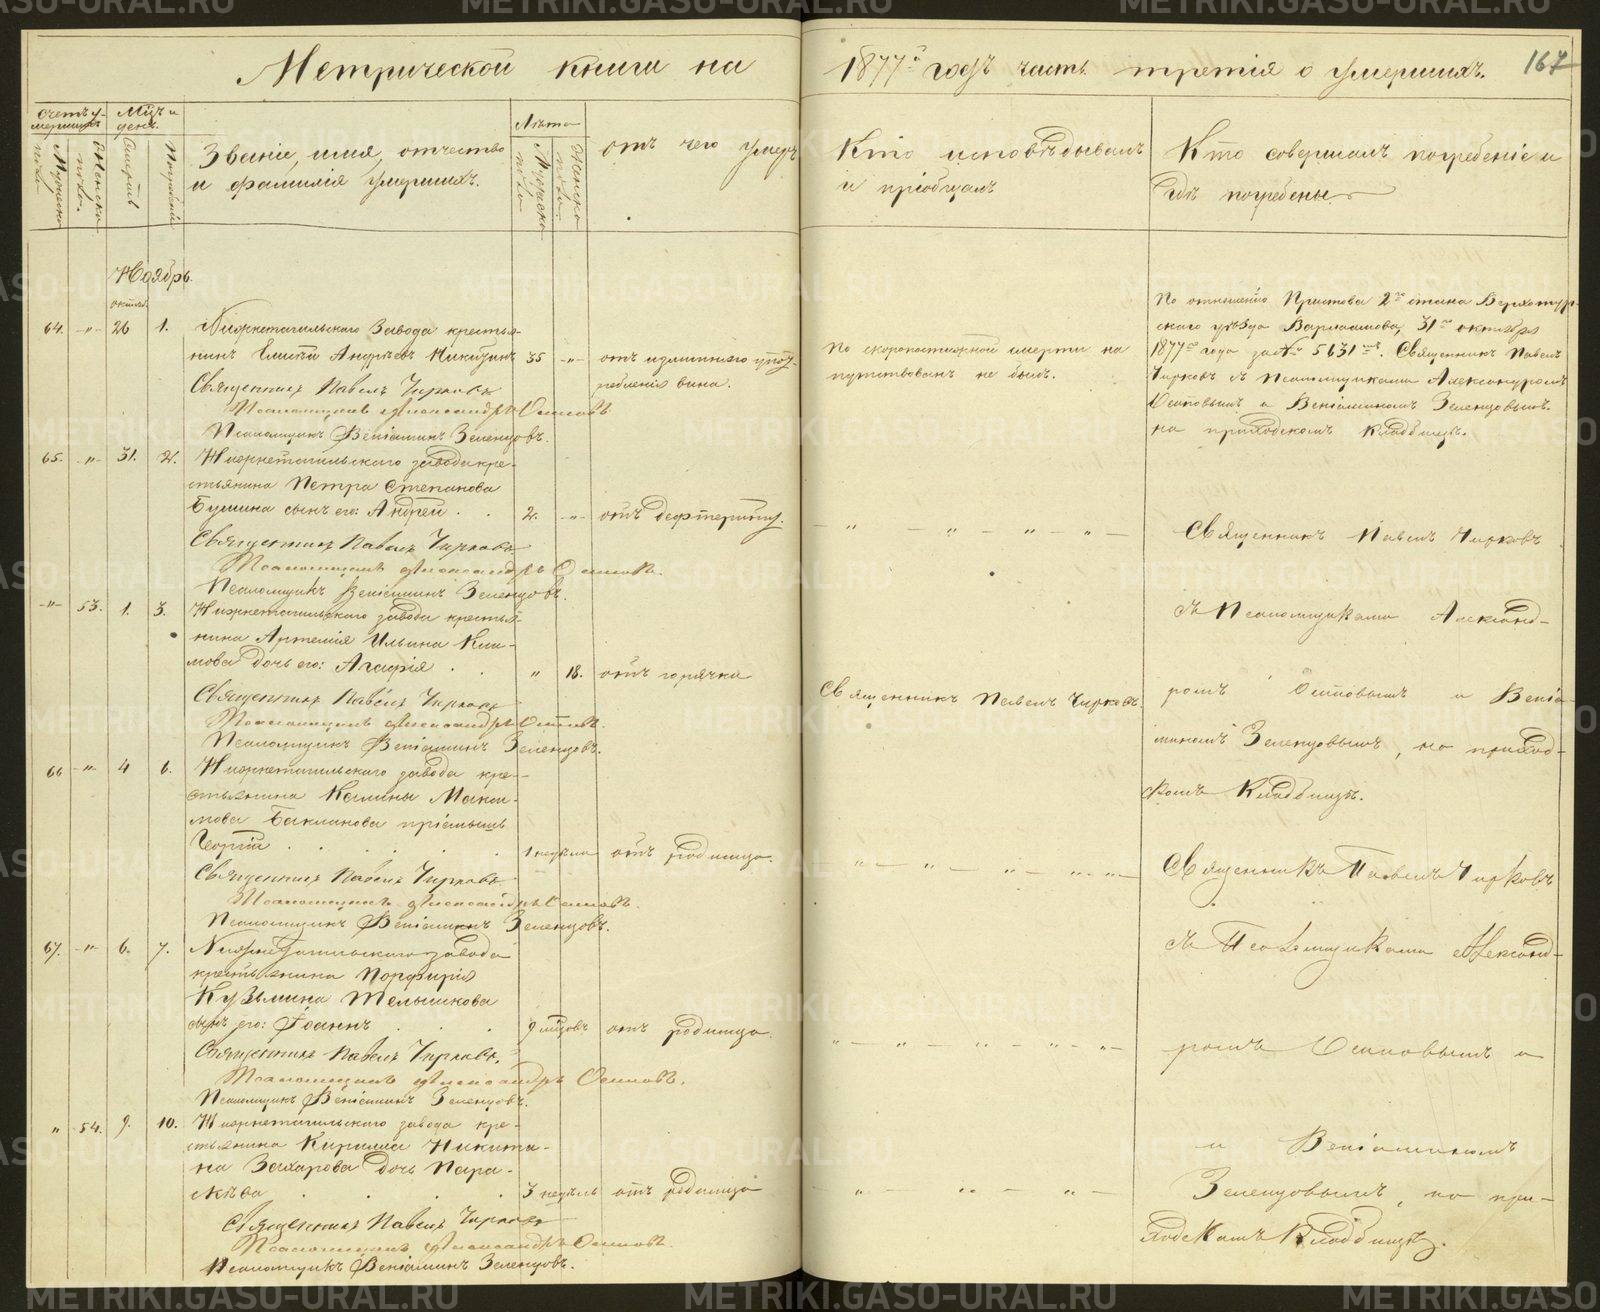 Метрической книги на 1877й годъ часть третія о умершихъ. 167
Счетъ умершихъ
Мужеска пола.
Женска пола.
Мцъ и день.
Смерти
Погребенія
Званіе, имя, отчество
и фамилія умершихъ.
Лѣта
Мужеска пола
Женска пола.
отъ чего умеръ
Кто исповѣдывалъ
и пріобщалъ
Кто совершалъ погребеніе и
гдѣ погребены
Ноябрь.
октяб.
64. -"- 26 1. Нижнетагильскаго Завода крестья-
нинъ Андреевъ Никитинъ 35 -"- отъ излишняго упот-
ребленія вина.
Священникъ Павелъ Чирковъ
Псаломщикъ Александръ Осиповъ
Псаломщикъ Веніаминъ Зеленцовъ.
По скоропостижной смерти на
путствованъ не былъ.
По отношенію Пристава 2го стана Верхотур-
скаго уѣзда Варлашова, 31го октября
1877го года за № 5631мъ. Священникъ Павелъ
Чирковъ съ Псаломщиками Александромъ
Осиповымъ и Веніаминомъ Зеленцовымъ.
на приходскомъ кладбищѣ.
65. -"- 31. 2. Нижнетагильскаго завода кре-
стьянина Петра Степанова
Бушина сынъ его: Андрей . . 2. -"- отъ дефтерита.
Священникъ Павелъ Чирковъ
Псаломщикъ Александръ Осиповъ.
Псаломщикъ Веніаминъ Зеленцовъ.
- " - " - " - " -
Священникъ Павелъ Чирковъ
-"- 53. 1. 3. Нижнетагильскаго завода крестья-
нина Артемія Ильина Кли-
мова дочь его: Агафія . " 18. отъ горячки
Священникъ Павелъ Чирковъ
Псаломщикъ Александръ Осиповъ.
Псаломщикъ Веніаминъ Зеленцовъ.
Священникъ Павелъ Чирковъ
съ Псаломщиками Александ-
ромъ Осиповымъ и Веніа-
миномъ Зеленцовымъ, на приход-
скомъ Кладбищѣ.
66 -"- 4 6. Нижнетагильскаго завода кре-
стьянина Калины Макси-
мова Бакланова пріемышъ
Георгій . . . . 1 недѣля отъ родимца.
Священникъ Павелъ Чирковъ
Псаломщикъ Александръ Осиповъ.
Псаломщикъ Веніаминъ Зеленцовъ.
" - " - " - " - " -
Священникъ Павелъ Чирковъ
съ Псаломщиками Александ-
67. -"- 6. 7. Нижнетагильскаго завода
крестьянина Порфирія
Кузьмина Телышкова
сынъ его: Іоаннъ . . . 9 мцовъ отъ родимца.
Священникъ Павелъ Чирковъ.
Псаломщикъ Александръ Осиповъ.
Псаломщикъ Веніаминъ Зеленцовъ.
" - " - " - " - " -
ромъ Осиповымъ и
" 54. 9. 10. Нижнетагильскаго завода кре-
стьянина Кирилла Никити-
на Захарова дочь Пара-
скѣва . . . . 3 недѣль отъ родимца
Священникъ Павелъ Чирковъ
Псаломщикъ Александръ Осиповъ.
Псаломщикъ Веніаминъ Зеленцовъ.
" - " - " -
и Веніаминомъ
Зеленцовымъ, на при-
ходскомъ Кладбищѣ.
METRIKI.GASO-URAL.RU